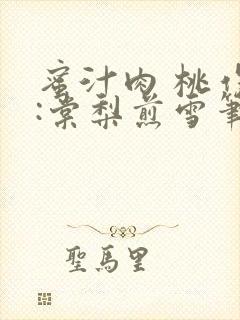 蜜汁肉桃作
:棠梨煎雪筆
聖馬里